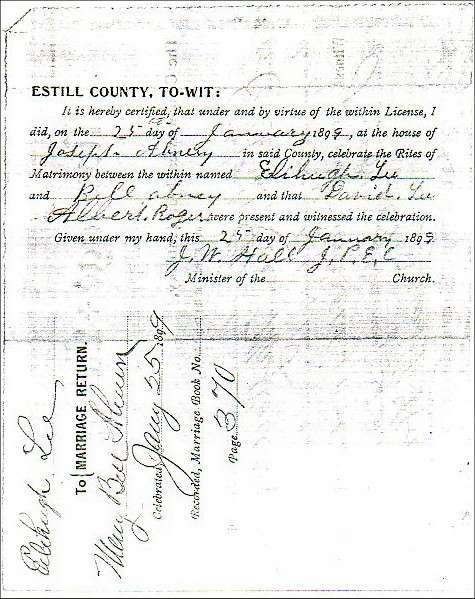 ESTILL COUNTY, TO-WIT:
It is hereby certified, that under and by virtue of the within License, I
did, on the 25 day of January 1899, at the house of
Joseph Abney in said County, celebrate the Rites of
Matrimony between the within named Elihugh Lee
and Bell abney and that David Lee
Albert Roger were present and witnessed the celebration.
Given under my hand, this 25 day of January 1899
J. W. Hall J. P. E. C
Minister of the Church.
Elihugh Lee
To MARRIAGE RETURN.
Mary Bell
Celebrated Jany 25 1899
Recorded, Marriage Book No.
Page 370